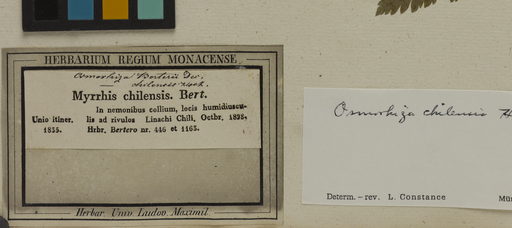 HERBARIUM REGIUM MONACENSE
Osmorhiza Berterii Dc.
— chilensis Hook.
Myrrhis chilensis. Bert.
In nemonibus collium, locis humidiuscu-
Unio itiner. lis ad rivulos Linachi Chili. Octbr. 1828,
1835. Hrbr. Bertero nr. 446 et 1163.
Herbar. Univ. Ludov. Maximil.
Osmorhiza chilensis
Determ. – rev. L. Constance